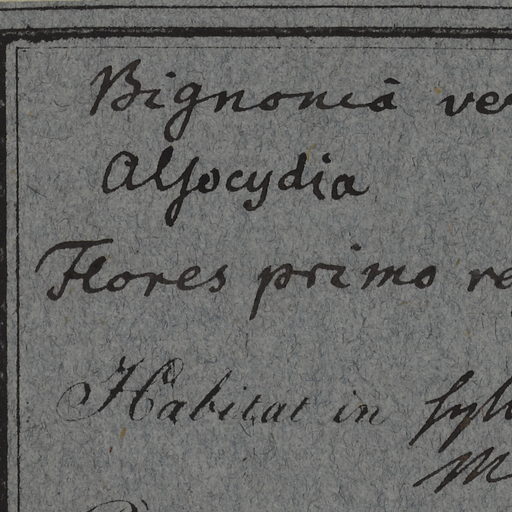 Bignonia ve
Alsocydia
Flores primo re
Habitat in sylv
M